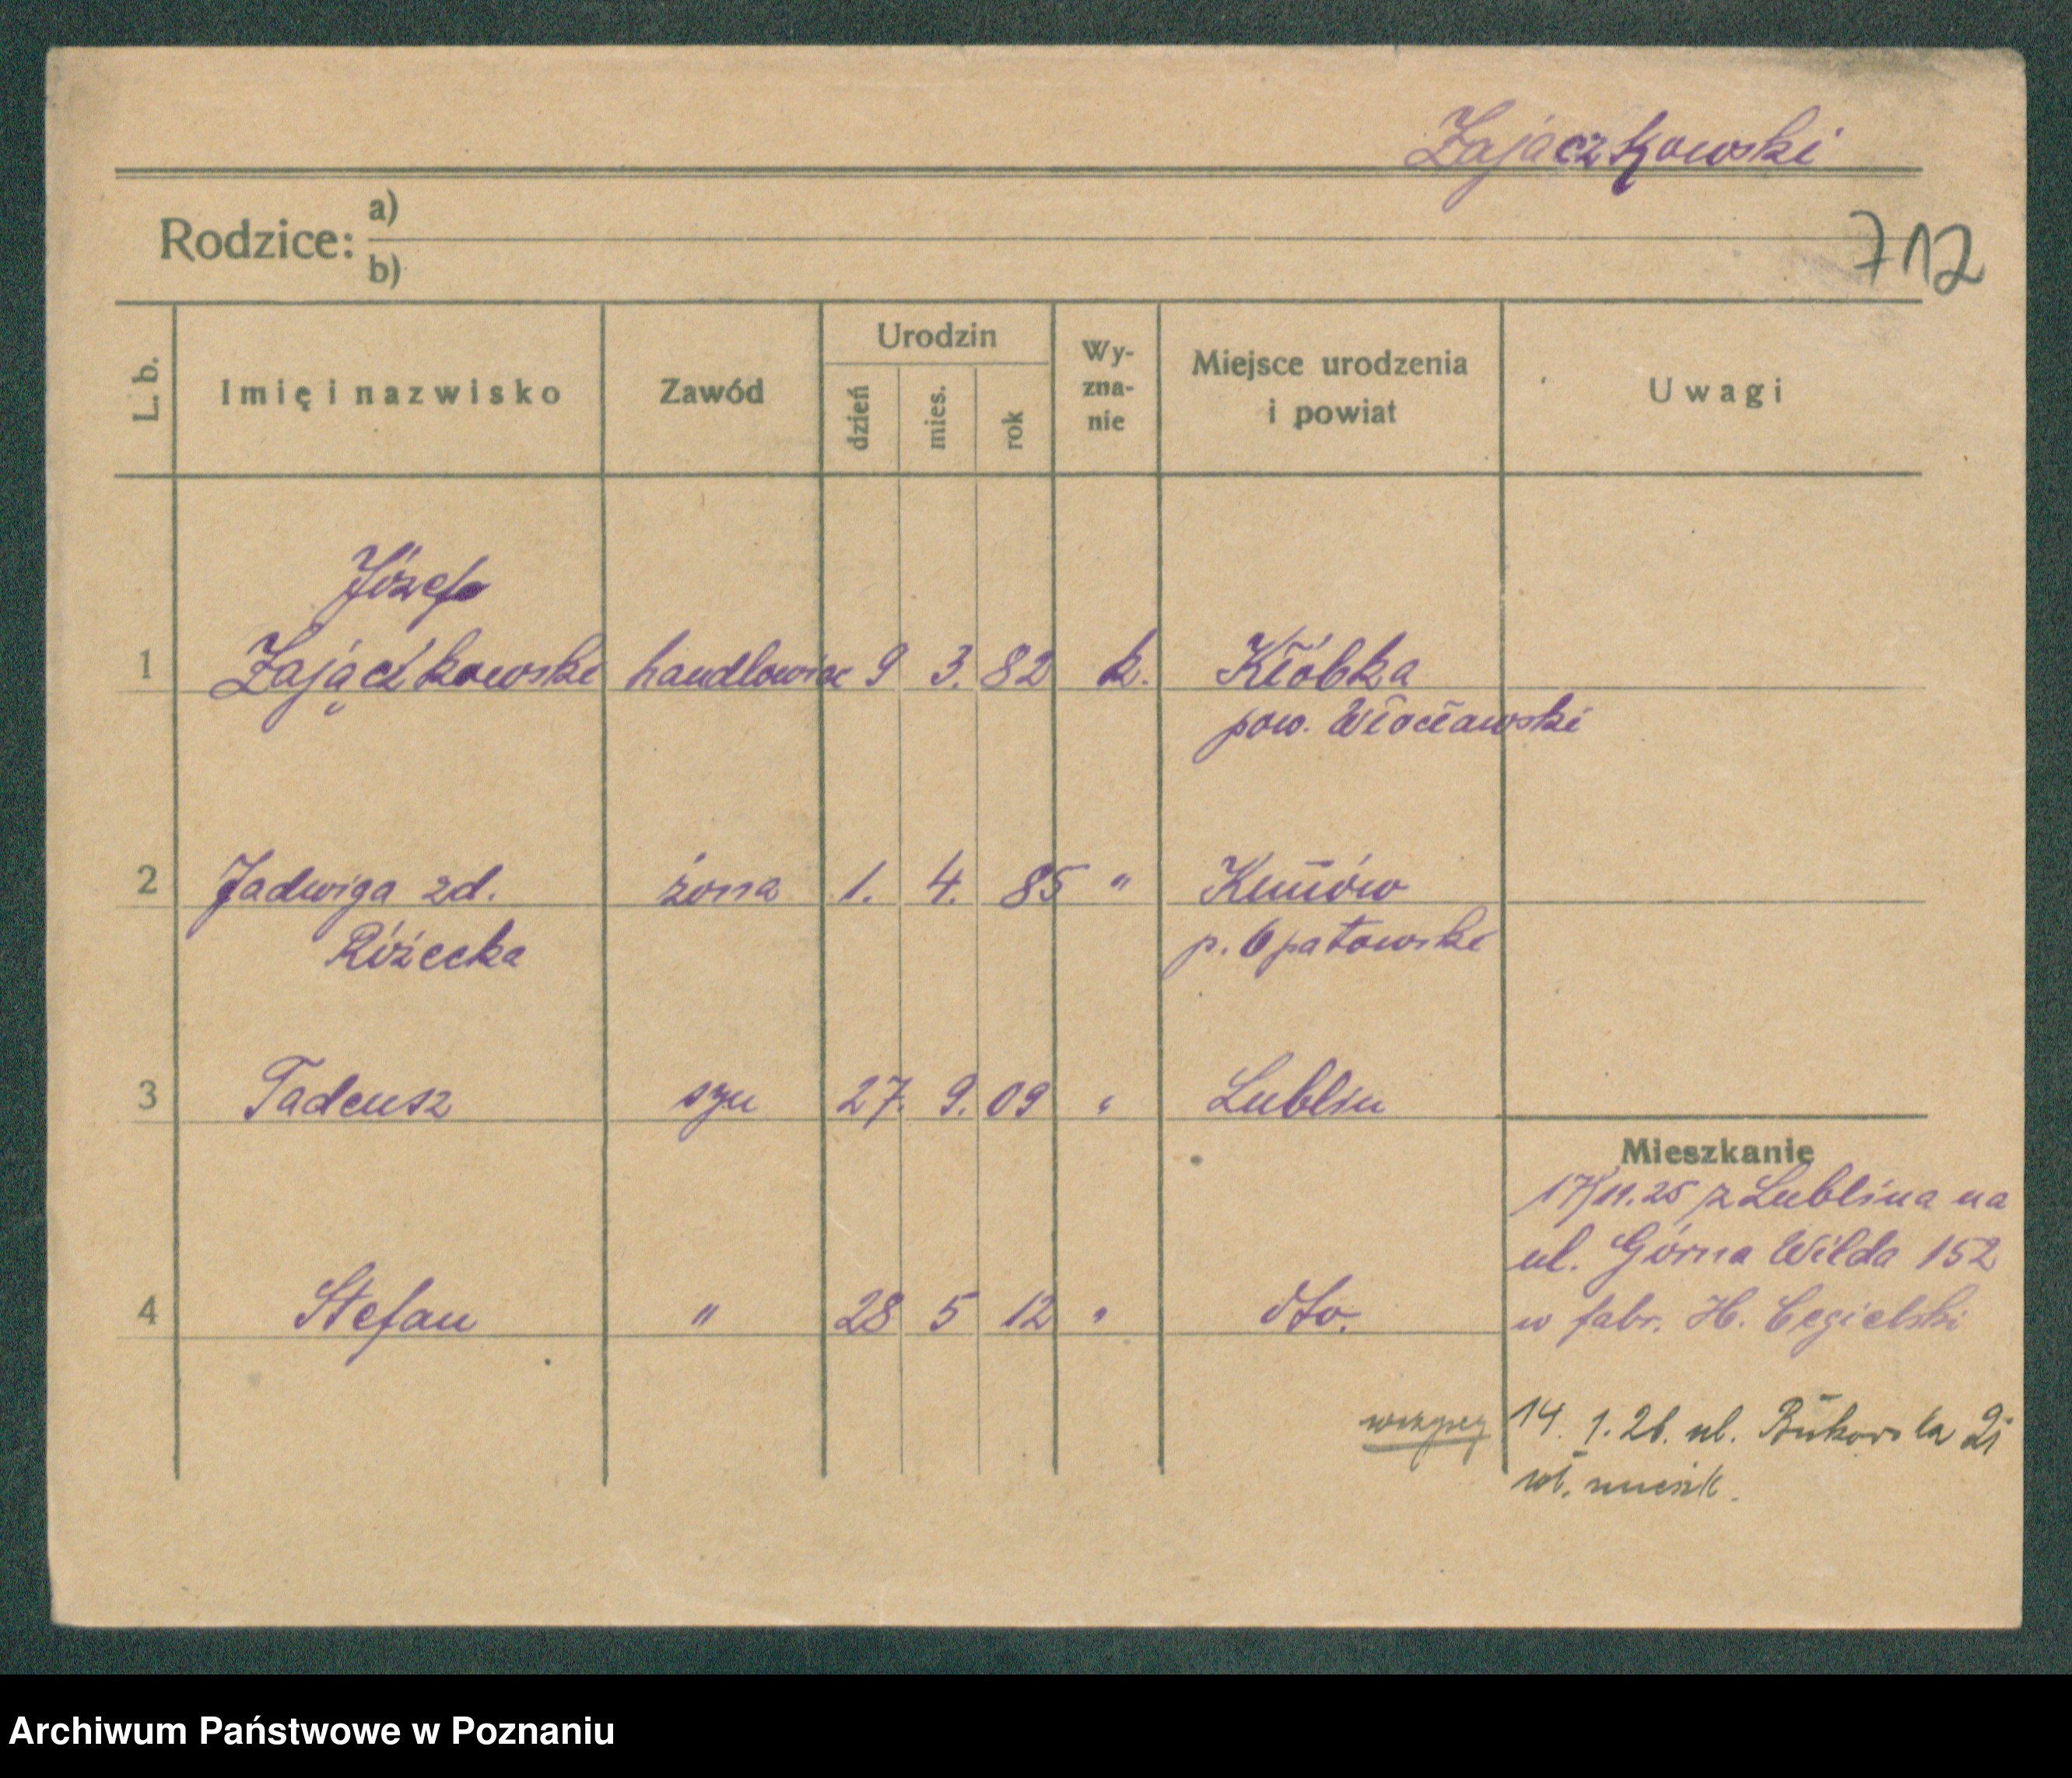 Zajaczkowski
Rodzice: a)
b)
712
L. b. Imię i nazwisko Zawód Urodzin dzień mies. rok Wy-zna-nie Miejsce urodzenia i powiat Uwagi
Józef
1 Zajączkowski handlowiec 9 3. 82 k. Kłóbka
pow. Włocławski
2 Jadwiga zd. żona 1. 4. 85 " Kunów
Różecka p. Opatowski
3 Tadeusz syn 27. 9. 09 " Lublin
Mieszkanie
17/11.25 z Lublina na
ul. Górna Wilda 152
4 Stefan " 28 5 12 " dto. w fabr. H. Cegielski
wszyscy 14. 1. 26. ul. Bukowska
wł. mieszk.
Archiwum Państwowe w Poznaniu